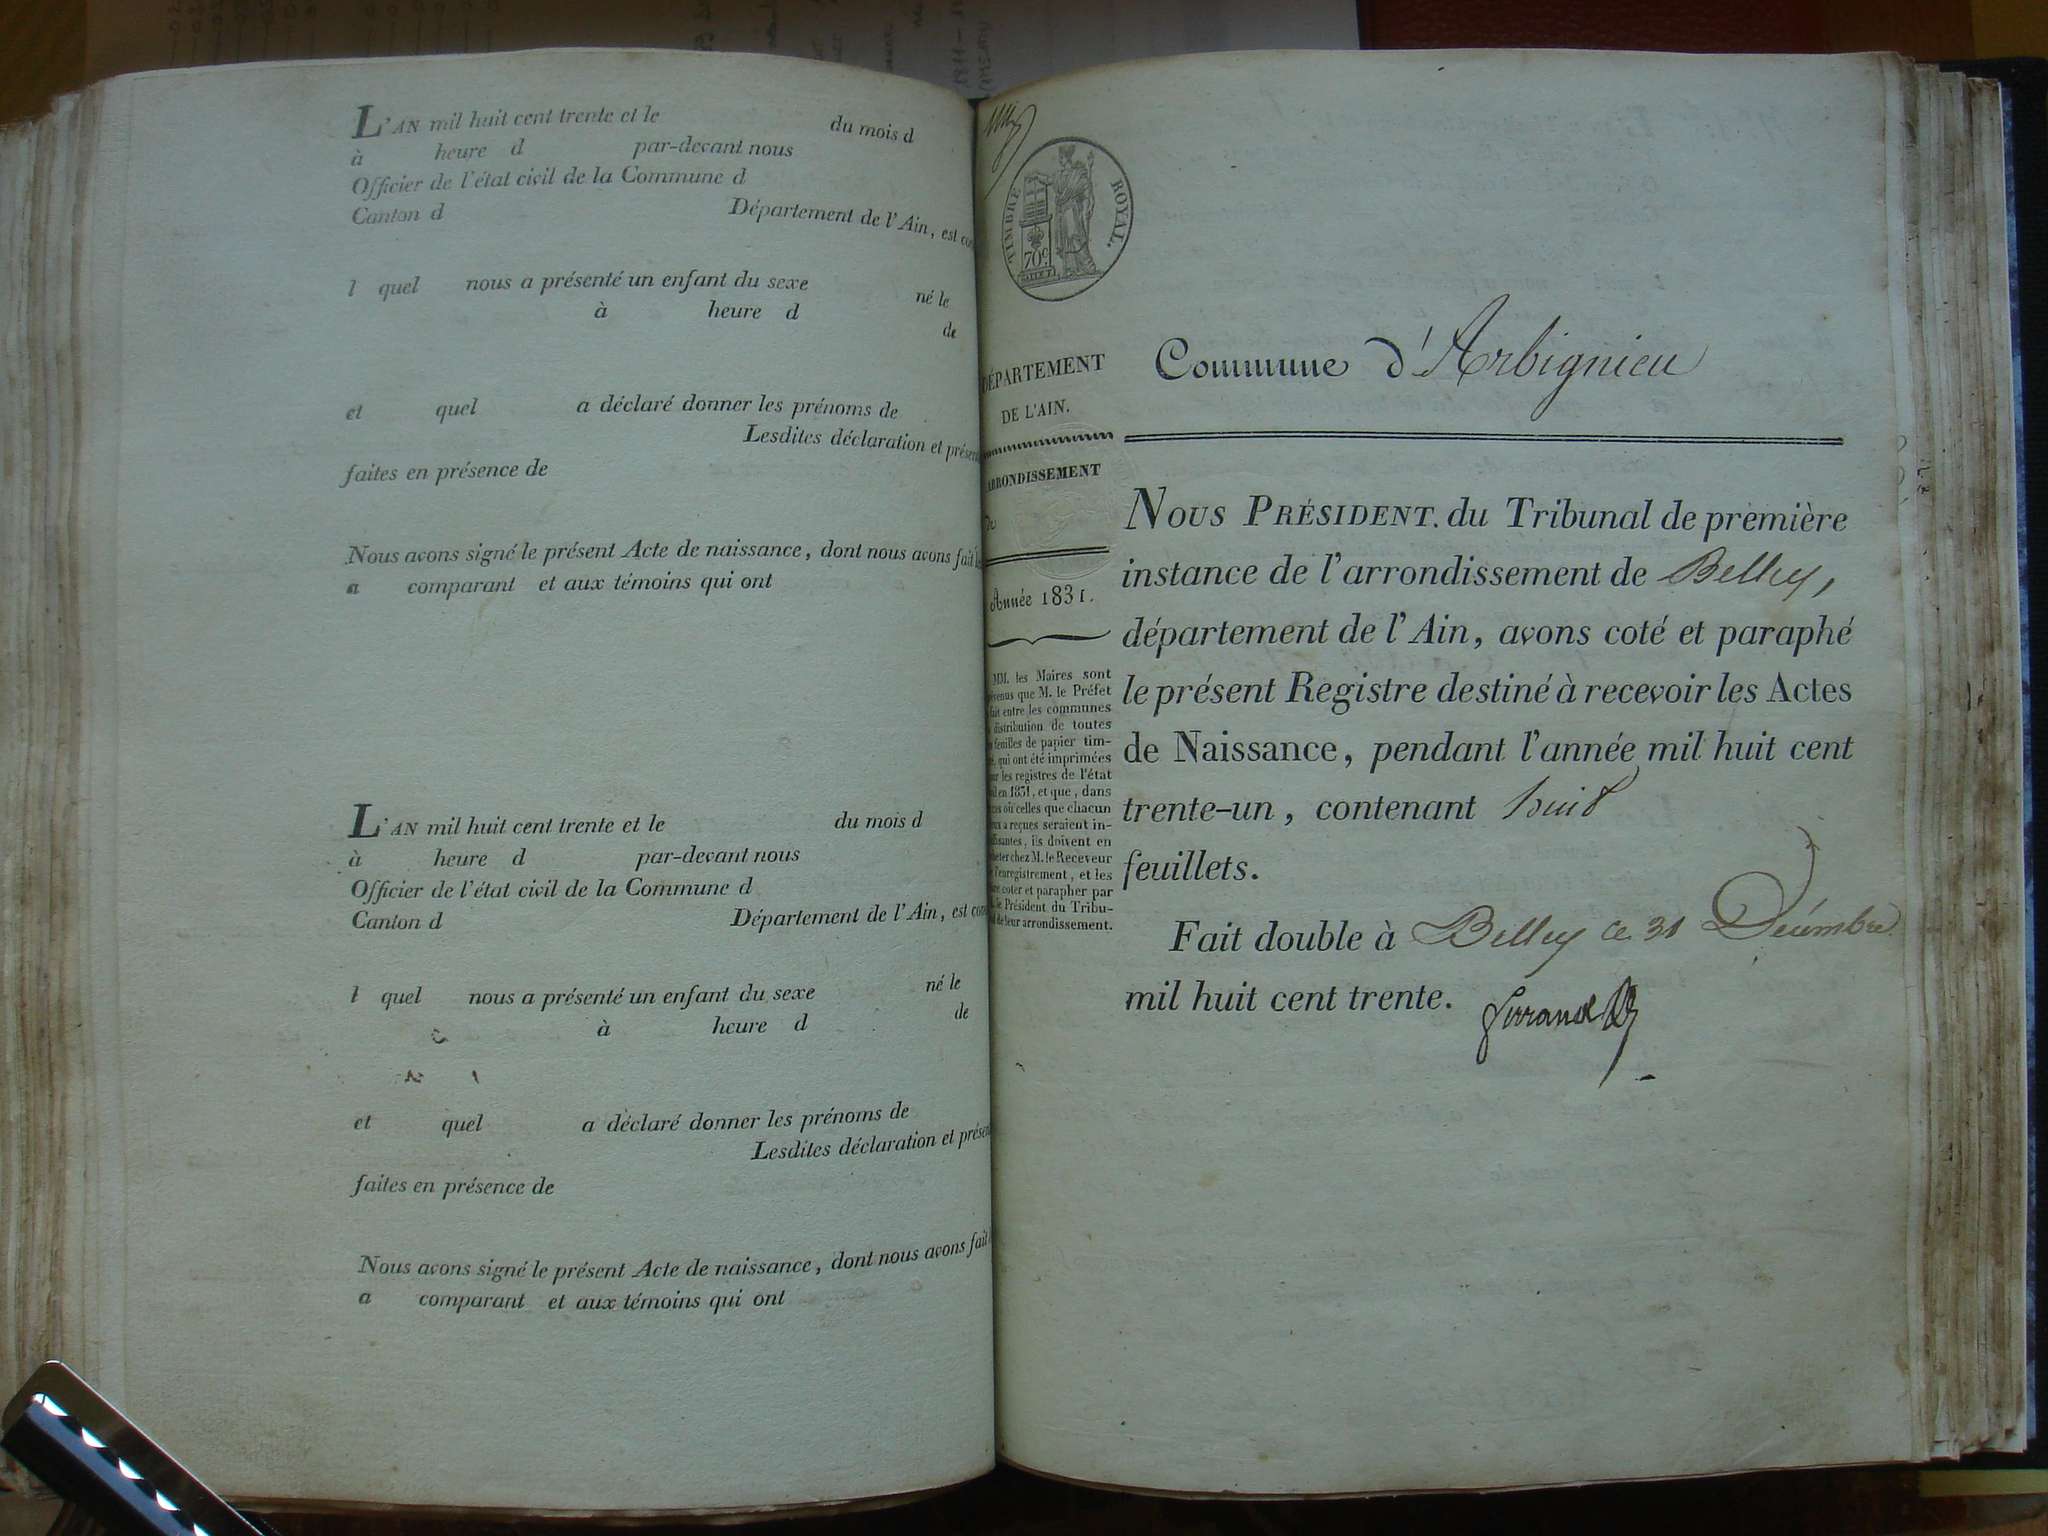 L'AN mil huit cent trente et le du mois d
à heure d par-devant nous
Officier de l'état civil de la Commune d
Canton d Département de l'Ain, est co
l quel nous a présenté un enfant du sexe né le
à heure d de
et quel a déclaré donner les prénoms de
Lesdites déclaration et présen
faites en présence de
Nous avons signé le présent Acte de naissance, dont nous avons fait
a comparant et aux témoins qui ont
L'AN mil huit cent trente et le du mois d
à heure d par-devant nous
Officier de l'état civil de la Commune d
Canton d Département de l'Ain, est com
l quel nous a présenté un enfant du sexe né le
à heure d de
et quel a déclaré donner les prénoms de
Lesdites déclaration et présen
faites en présence de
Nous avons signé le présent Acte de naissance, dont nous avons fait
a comparant et aux témoins qui ont
TIMBRE ROYAL.
70c
DÉPARTEMENT
DE L'AIN.
ARRONDISSEMENT
de
Année 1831.
MM. les Maires sont
venus que M. le Préfet
fait entre les communes
distribution de toutes
feuilles de papier tim-
, qui ont été imprimées
ur les registres de l'état
il en 1831, et que, dans
cas où celles que chacun
eux a reçues seraient in-
ffisantes, ils doivent en
heter chez M. le Receveur
l'enregistrement, et les
ire coter et parapher par
le Président du Tribu-
al de leur arrondissement.
Commune d'Arbignieu
NOUS PRÉSIDENT du Tribunal de première
instance de l'arrondissement de Belley,
département de l'Ain, avons coté et paraphé
le présent Registre destiné à recevoir les Actes
de Naissance, pendant l'année mil huit cent
trente-un, contenant huit
feuillets.
Fait double à Belley ce 31 Décembre
mil huit cent trente.